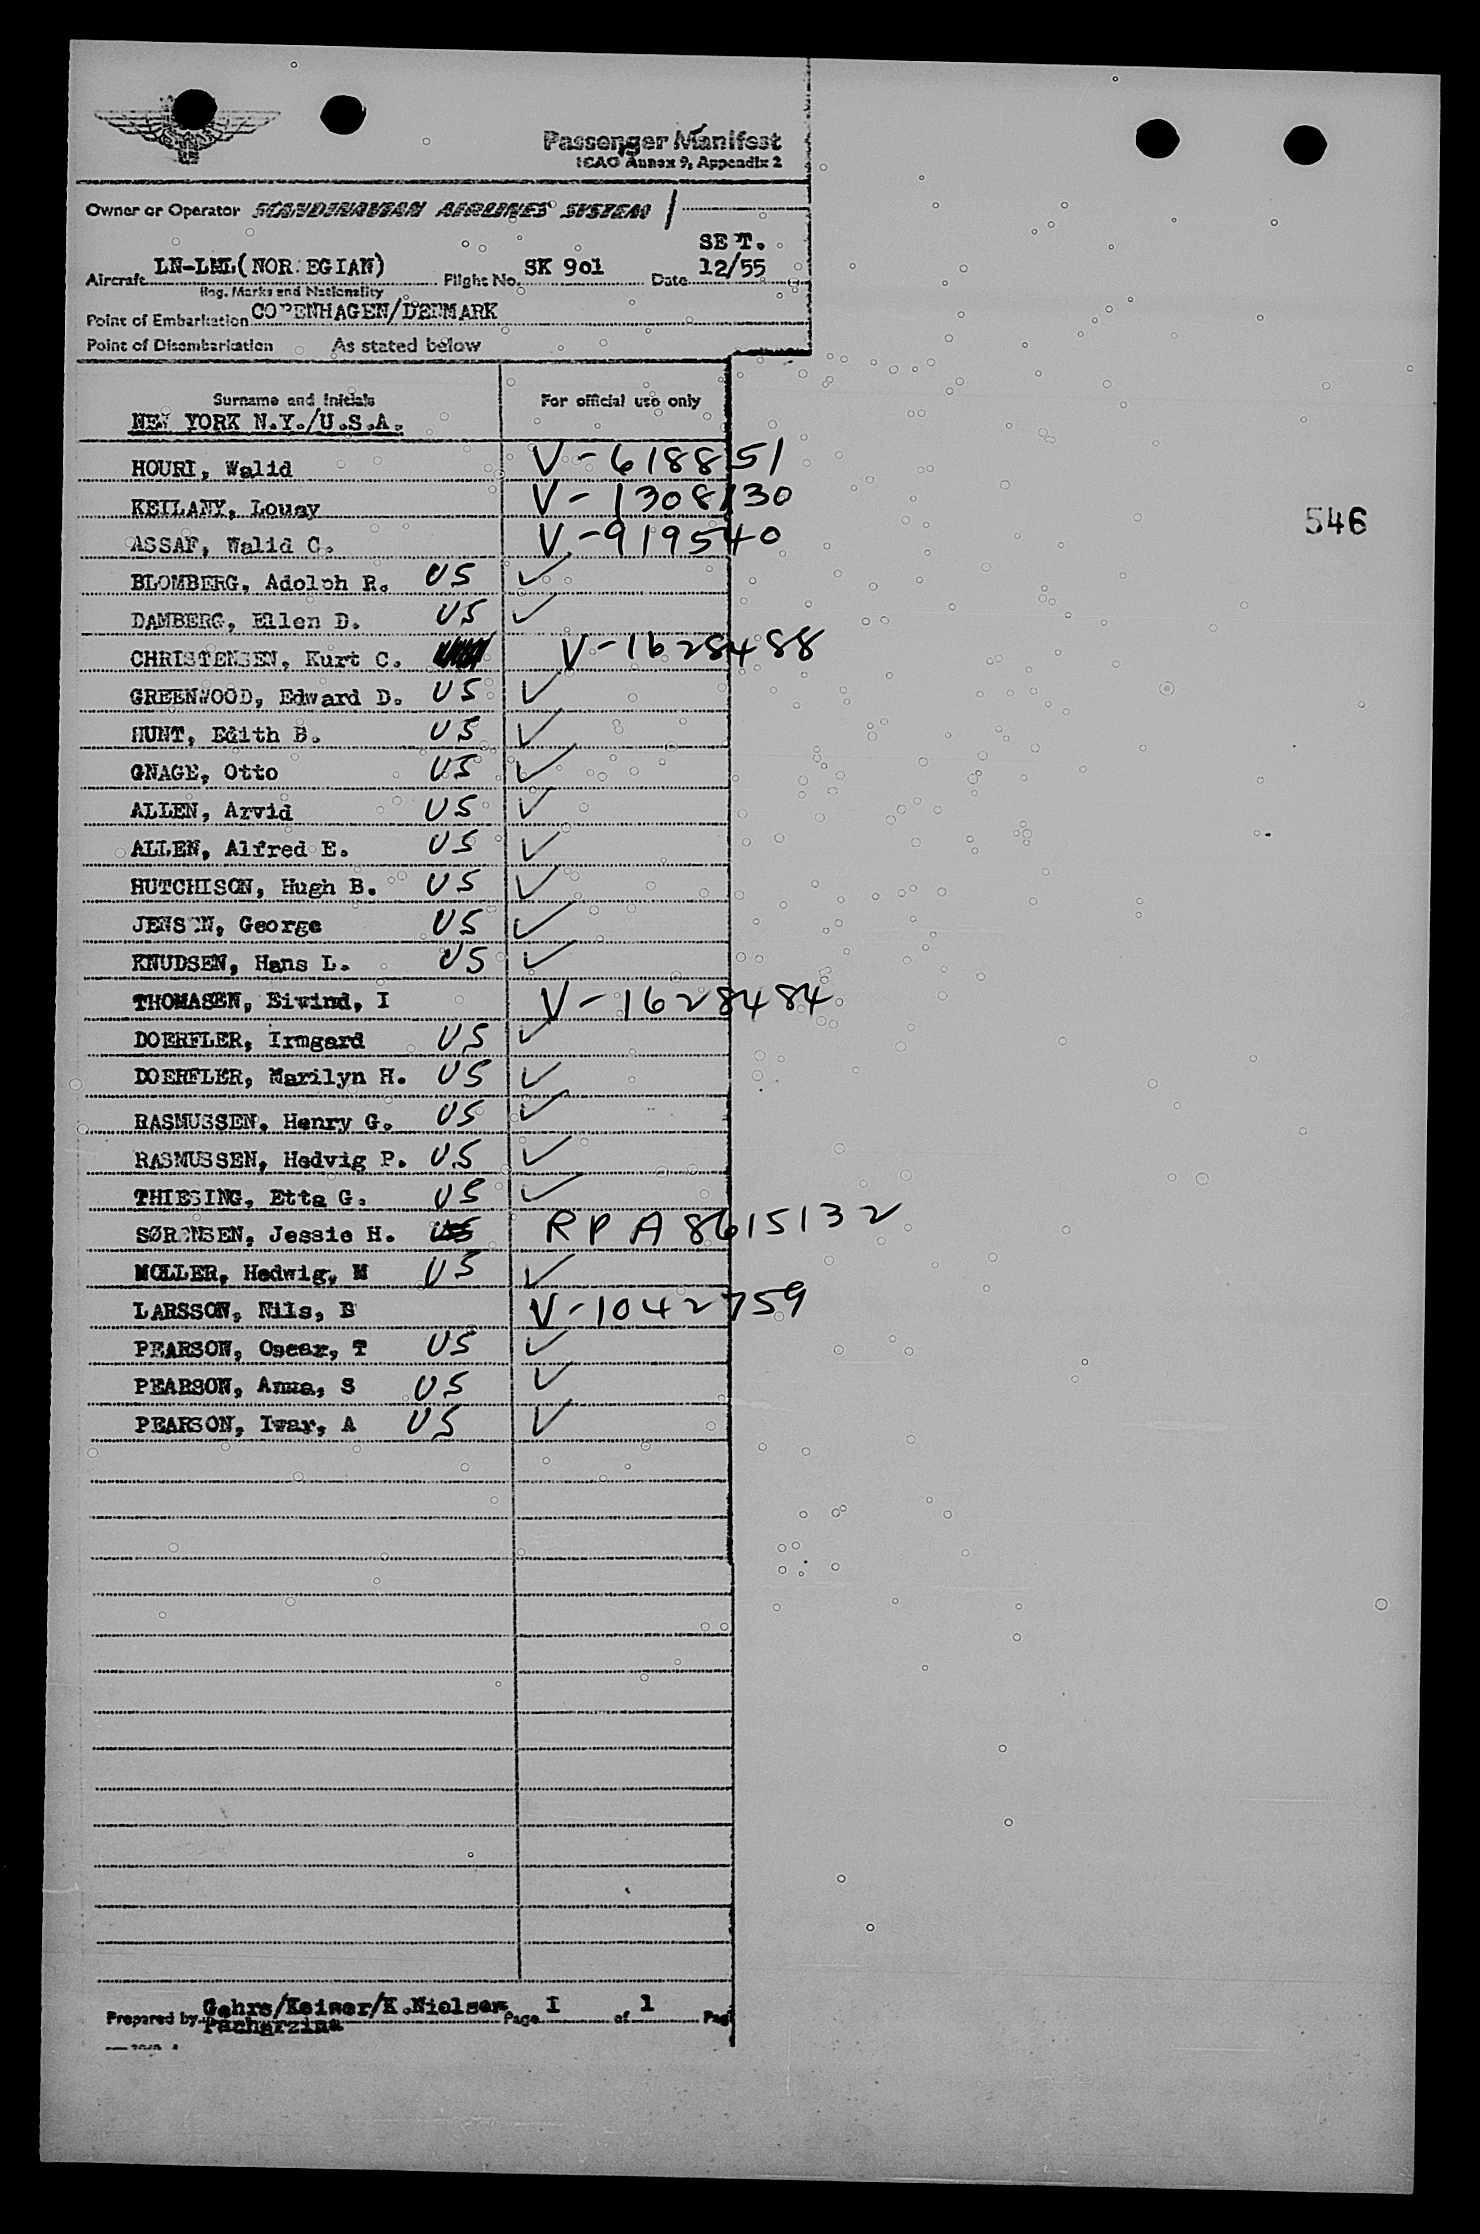 Passenger Manifest
ICAO Annex 9, Appendix 2
Owner or Operator SCANDINAVIAN AIRLINES SYSTEM
SET.
Aircraft LN-LML(NOR EGIAN) Flight No. SK 9o1 Date 12/55
Reg. Marks and Nationality
Point of Embarkation COPENHAGEN/DENMARK
Point of Disembarkation As stated below
Surname and Initials For official use only
NEW YORK N.Y./U.S.A.
HOURI, Walid V-618851
KEILANY, Louay V-1308130
546
ASSAF, Walid C. V-919540
BLOMBERG, Adolph R. US ✓
DAMBERG, Ellen D. US ✓
CHRISTENSEN, Kurt C. V-1628488
GREENWOOD, Edward D. US ✓
HUNT, Edith B. US ✓
GNAGE, Otto US ✓
ALLEN, Arvid US ✓
ALLEN, Alfred E. US ✓
HUTCHISON, Hugh B. US ✓
JENSEN, George US ✓
KNUDSEN, Hans L. US ✓
THOMASEN, Eiwind, I V-1628484
DOERFLER, Irmgard US ✓
DOERFLER, Marilyn H. US ✓
RASMUSSEN, Henry G. US ✓
RASMUSSEN, Hedvig P. US ✓
THIESING, Etta G. US ✓
SØRENSEN, Jessie H. US RPA 8615132
MOLLER, Hedwig, M US ✓
LARSSON, Nils, B V-1042759
PEARSON, Oscar, T US ✓
PEARSON, Anna, S US ✓
PEARSON, Iwar, A US ✓
Prepared by Gehrs/Keiser/K.Nielsen Page I of 1 Pag